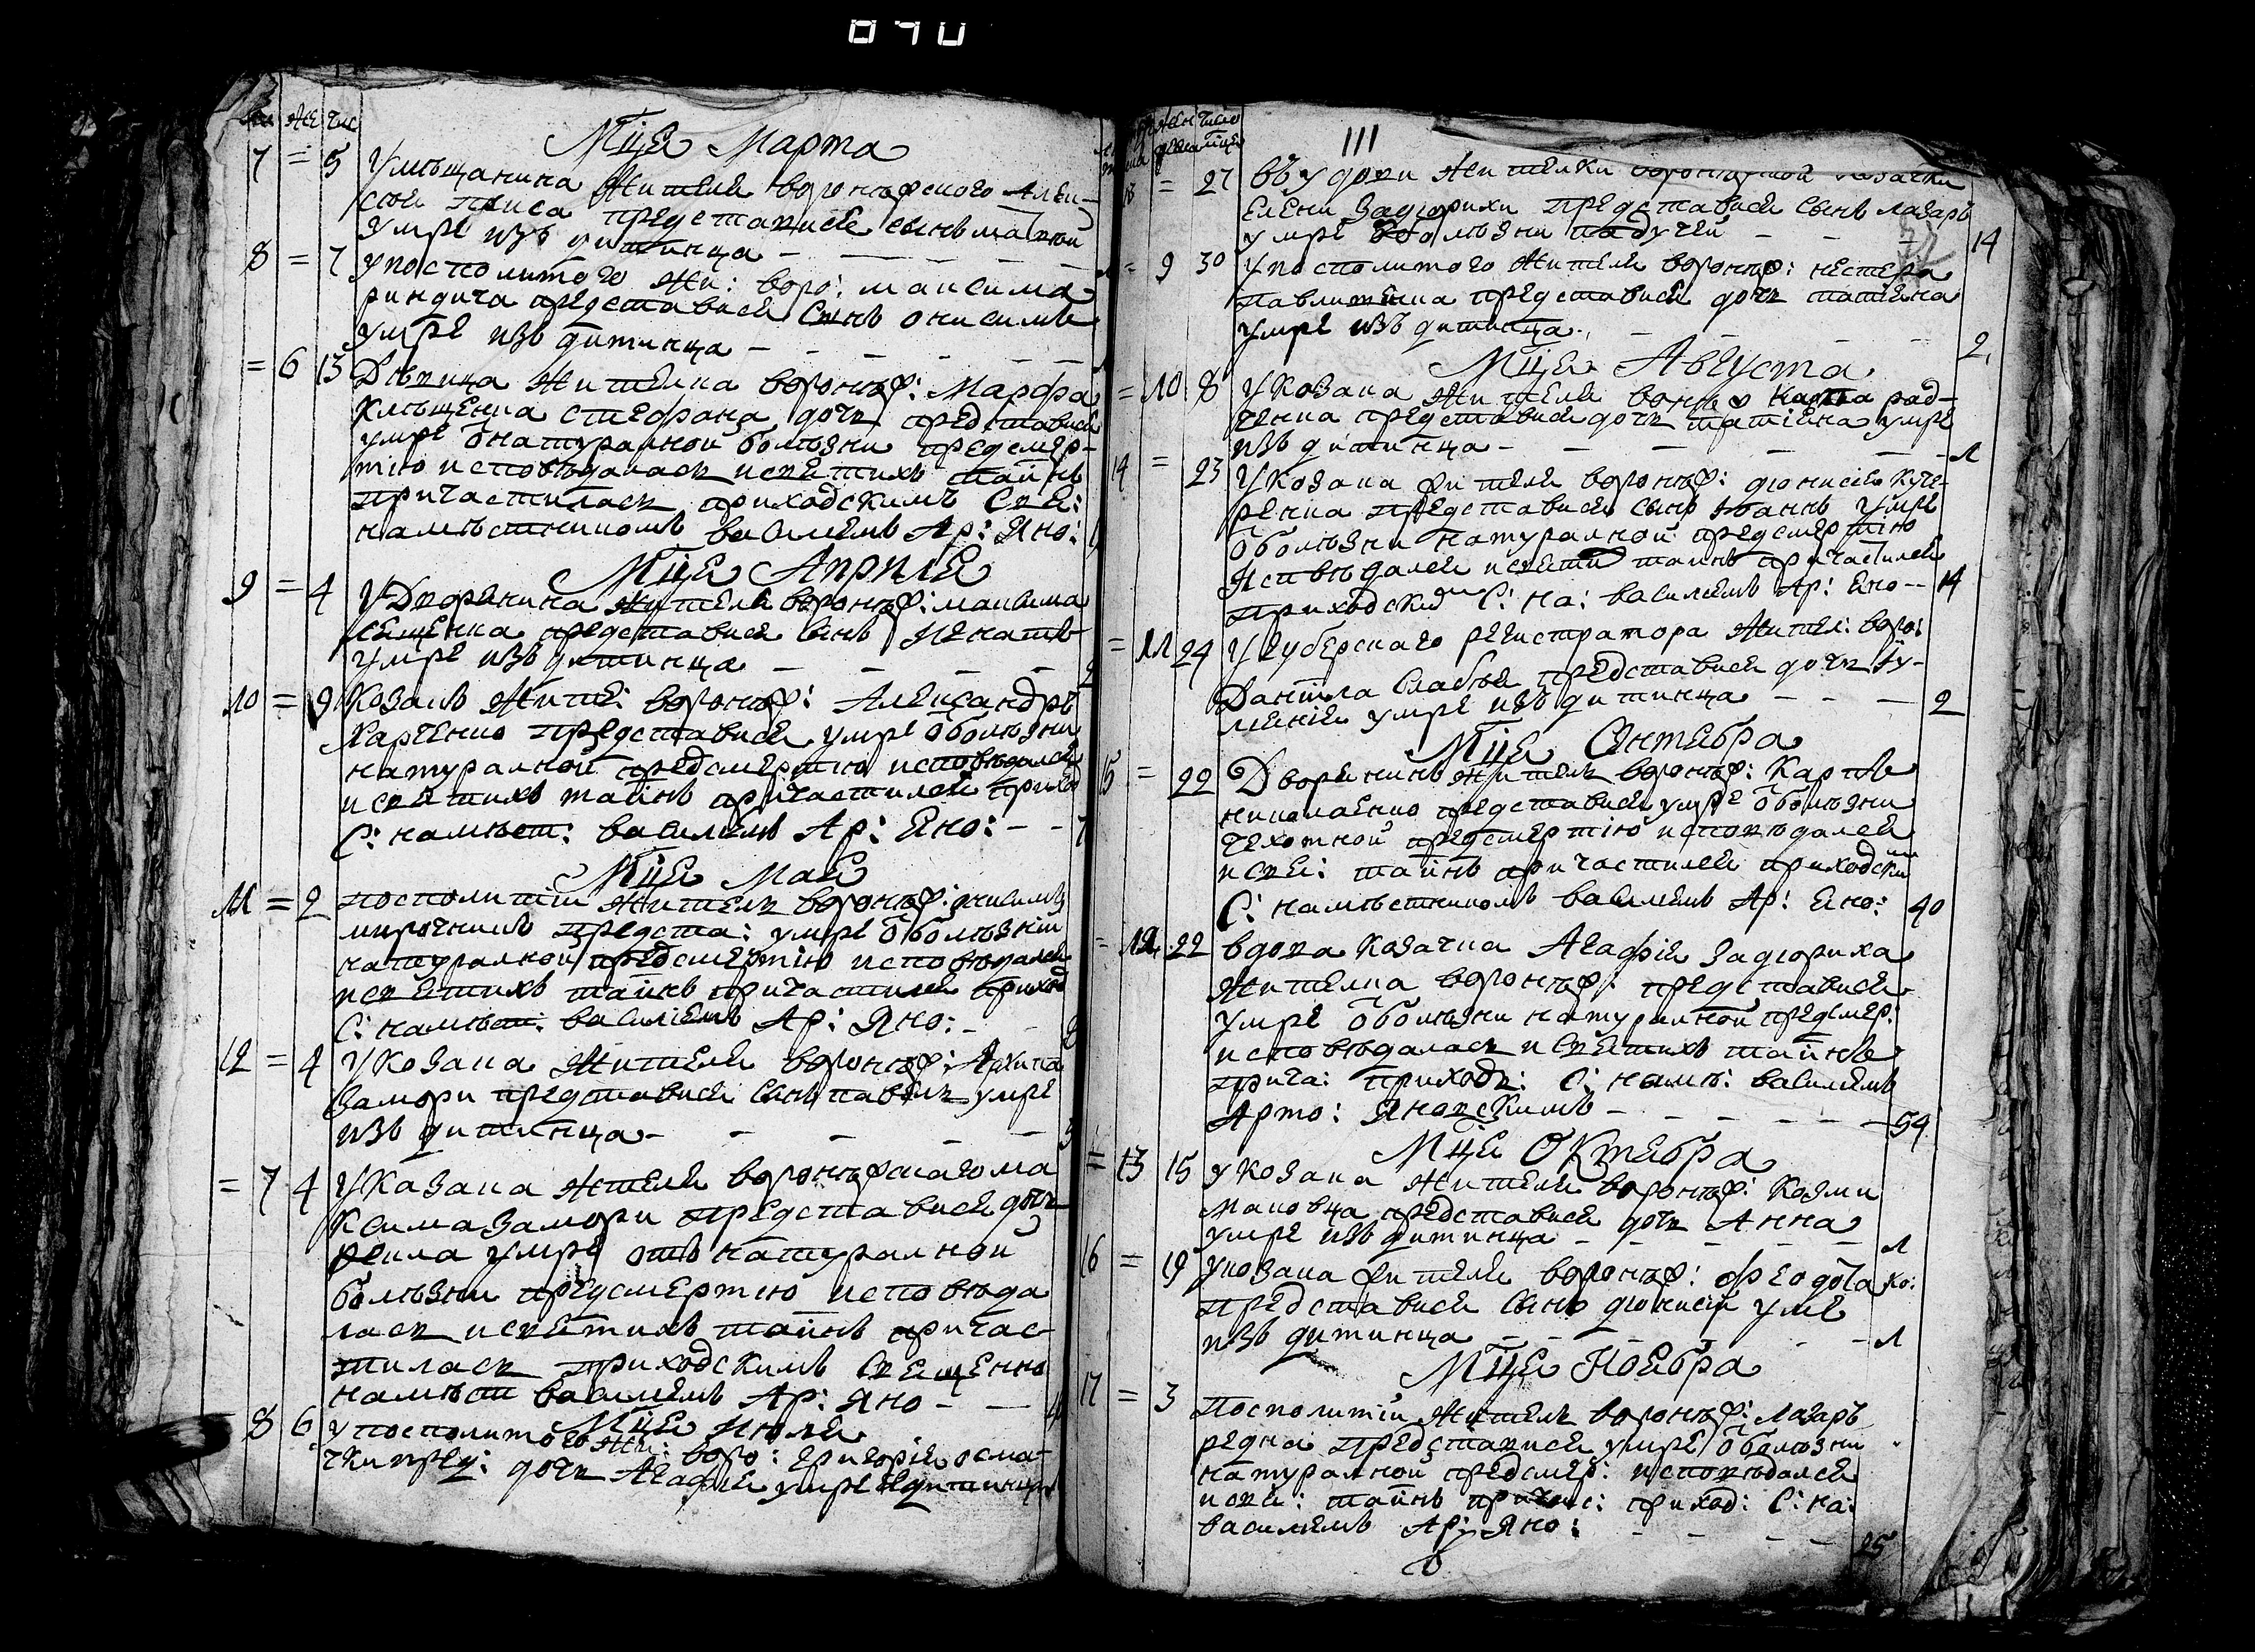 му же чис
Мця Марта
7 = 5 У мѣщанина жителя воронѣжского Алек-
сея представися сынъ
умре изъ дитинца
8 = 7 У посполитого жи: воро: максима
риндича представися Сынъ онисимъ
умре изъ дитинца
= 6 13 Дѣвица жителка воронѣж: Марфа
Клѣщенка стефана дочь представися
умре о натуралной болѣзни пред смер-
тію исповѣдалась и святихъ тайнъ
причастилась приходскимъ Свя:
намѣстникомъ василіемъ Ар: Яно:
Мця Априля
9 = 4 У Дворянина жителя воронѣж: максима
лещенка представися Сынъ Игнатъ
умре изъ дитинца
10 = 9 Козакъ жите: воронѣж: Александръ
Харченко представися умре о болѣзни
натуралной пред смертію исповѣдался
и святихъ тайнъ причастился приход
С: намѣст: василіемъ Ар: Яно:
Мця Мая
11 = 2 посполитій житель воронѣж: онисимъ
мирочникъ предста: умре о болѣзніи
натуралной пред смертію исповѣдался
и святихъ тайнъ причастился приход
С: намѣст: василіемъ Ар: Яно:
12 = 4 У Козака жителя воронѣж: Архипа
Замори представися Сынъ павелъ умре
изъ дитинца
= 7 4 У Казака жтеля воронѣжскаго ма
Ксима Замори представися дочь
умре отъ натуралной
болѣзни пред смертію исповѣда
лась и святихъ тайнъ причас-
тилась приходскимъ Священно
намѣст василіемъ Ар: Яно
Мця Июля
8 6 У посполитого жи: воро: григорія осма-
чки пред: дочь Агафія умре дитинца
111
= 27 въ удови жителки воронѣжской козачки
Елени Задюрихи представися Сынъ лазаръ
умре болѣзни падучей 14
= 9 30 У посполитого жителя воронѣж: нестера
павлитенка представися дочь татіена
умре изъ дитинца 2
Мця Августа
= 10 8 У Козака жителя ворнѣж рад-
ченка представися дочь татіена умре
изъ дитинца 1
14 = 23 У Козака жителя воронѣж: діонисія Куче-
ренка представися Сынъ Іоаннъ умре
о болѣзни натуралной пред смертію
Исповѣдался и святи тайнъ причастился
приходским С: на: василіемъ Ар: Яно 14
= 11 24 У губерскаго регистратора жител: воро:
Даніила Слабѣя представися дочь Іу-
лianія умре изъ дитинца 2
Мця Сентебра
15 = 22 Дворенинъ житель воронѣж: Карпъ
николаенко представися умре о болѣзни
чехотной пред смертію исповѣдался
и свя: тайнъ причастился приходским
С: намѣстникомъ василіемъ Ар: Яно: 40
= 12 22 вдова козачка Агафія Задюриха
жителка воронѣж: представися
умре о болѣзни натуралной пред смер:
исповѣдалась и Святихъ тайнъ
прича: приход: С: намѣ: василіемъ
Арто: Яновскимъ 54
Мця Октебра
= 13 15 у козака жителя воронѣж: Козми
маковца представися дочь Анна
умре изъ дитинца 1
16 = 19 у козака жителя воронѣж: феодота ко:
представися Сынъ діонисій умре
изъ дитинца 1
Мця Ноебра
17 = 3 Посполитій житель воронѣж: Лазаръ
редка представися умре о болѣзни
натуралной пред смер: исповѣдался
и свя: тайнъ причас: приход: С: на:
василіемъ Ар: Яно: 25